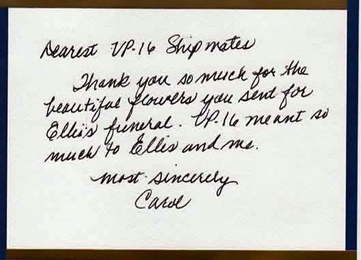 Dearest VP-16 Shipmates
Thank you so much for the
beautiful flowers you sent for
Ellis's funeral. VP-16 meant so
much to Ellis and me.
most sincerely
Carol